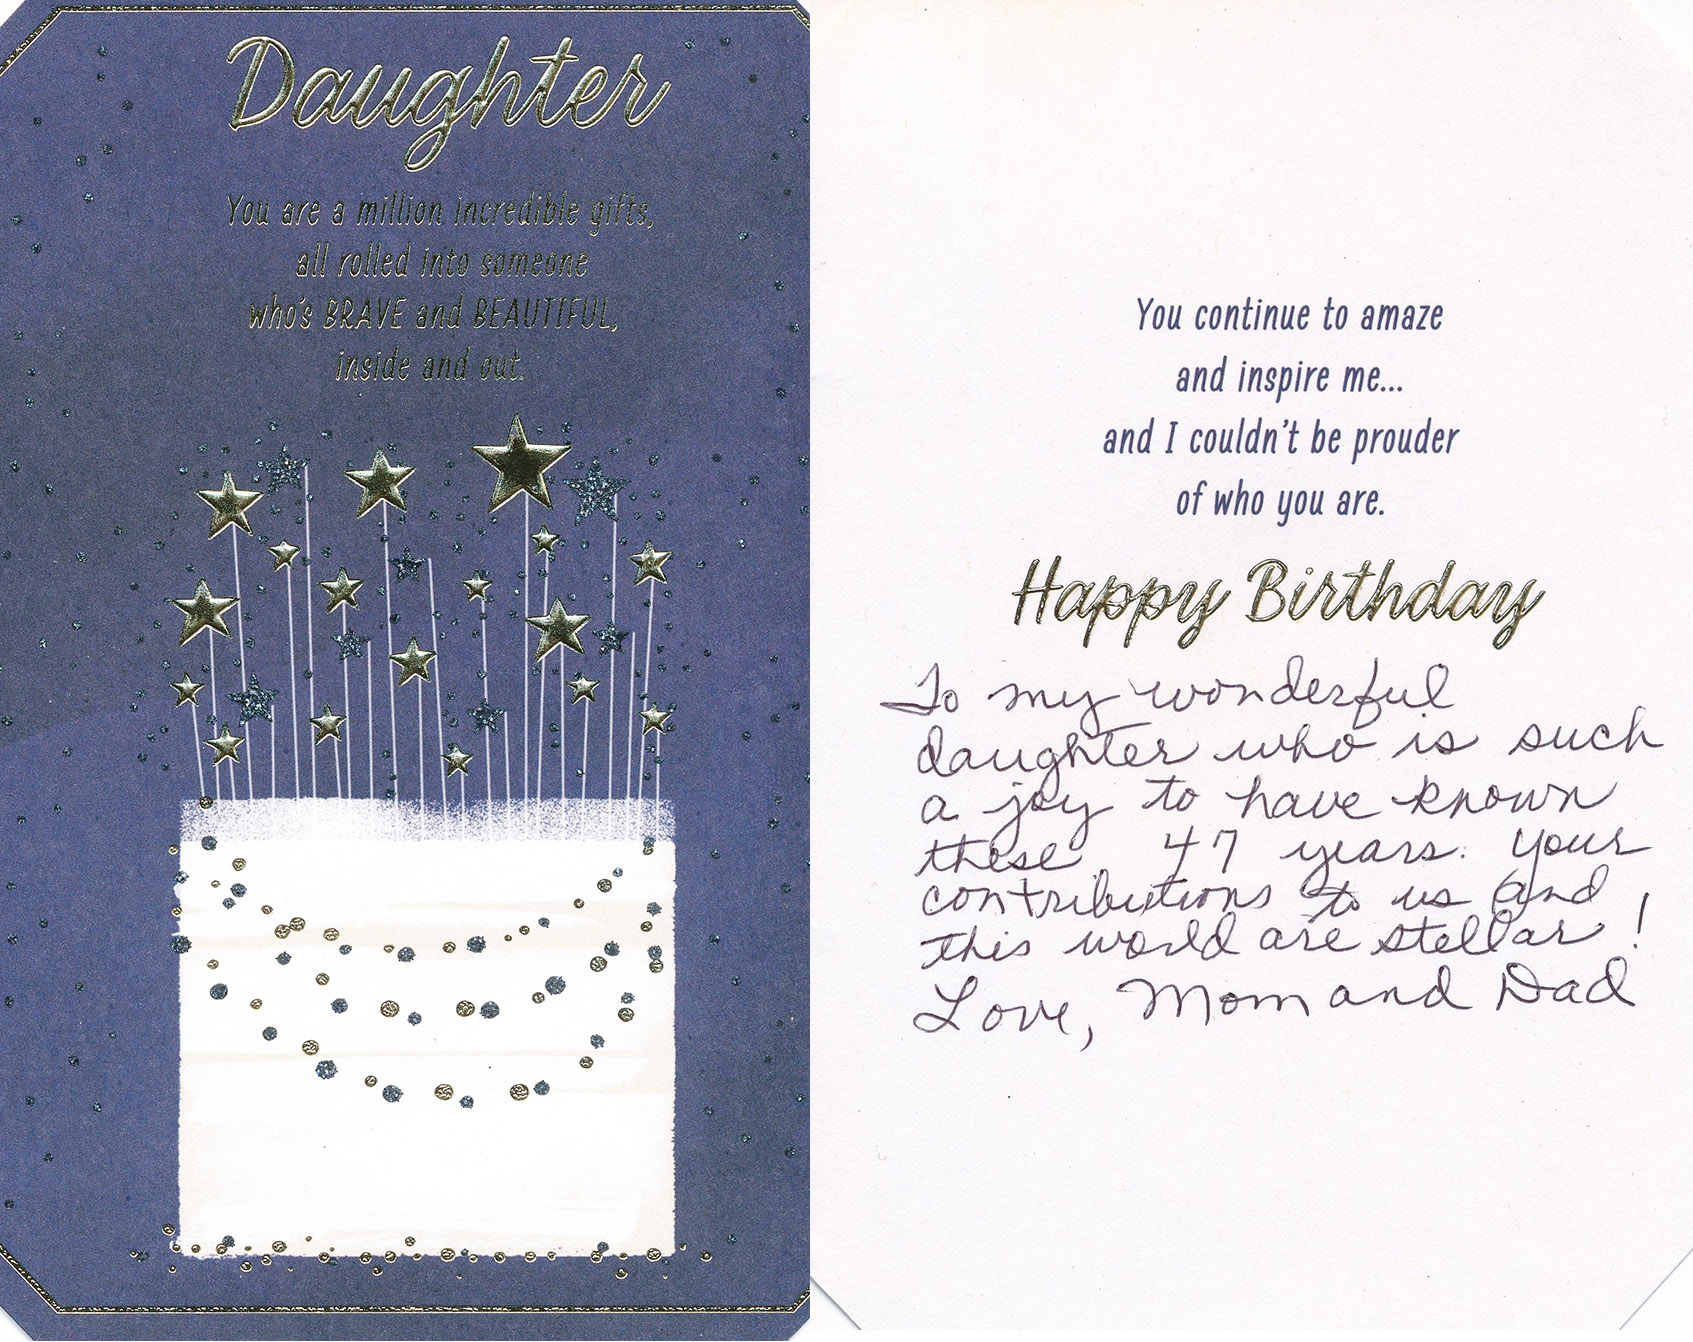 Daughter
You are a million incredible gifts,
all rolled into someone
who's BRAVE and BEAUTIFUL,
inside and out.
You continue to amaze
and inspire me...
and I couldn't be prouder
of who you are.
Happy Birthday
To my wonderful
daughter who is such
a joy to have known
these 47 years. Your
contributions to us and
this world are stellar!
Love, Mom and Dad